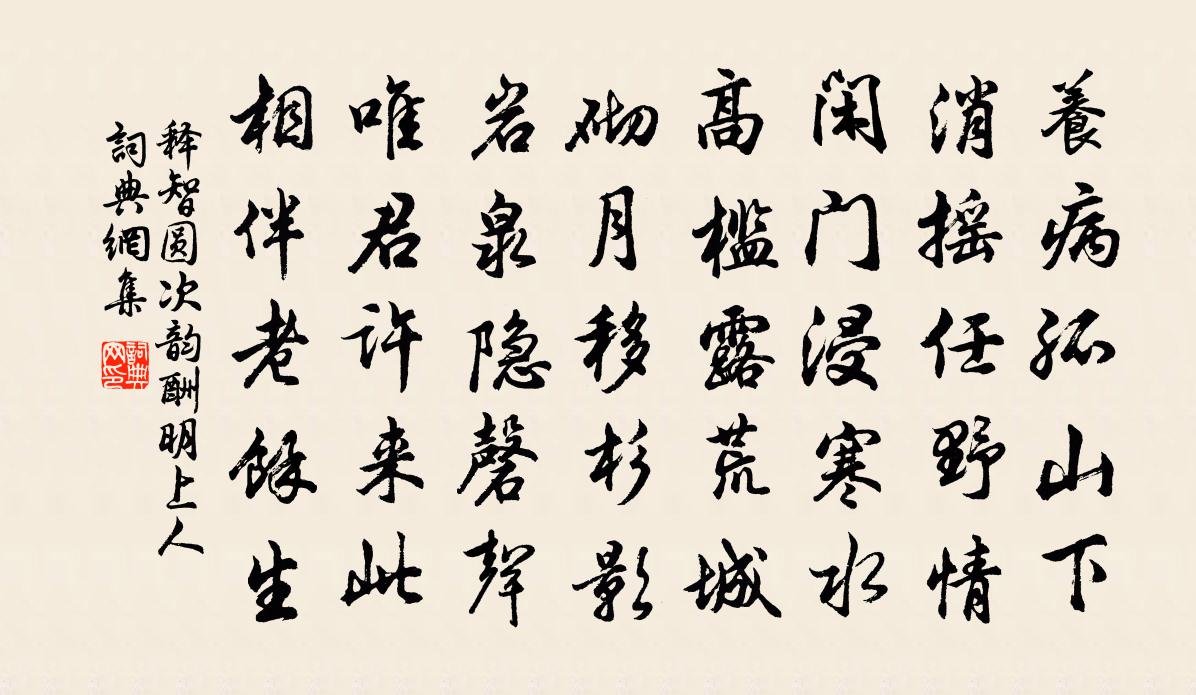 養病孤山下
消摇任野情
闲门浸寒水
高槛露荒城
砌月移杉影
岩泉隐磬聲
唯君许来此
相伴老餘生
释智圆次韵酬明上人
詞典網集
詞典网印